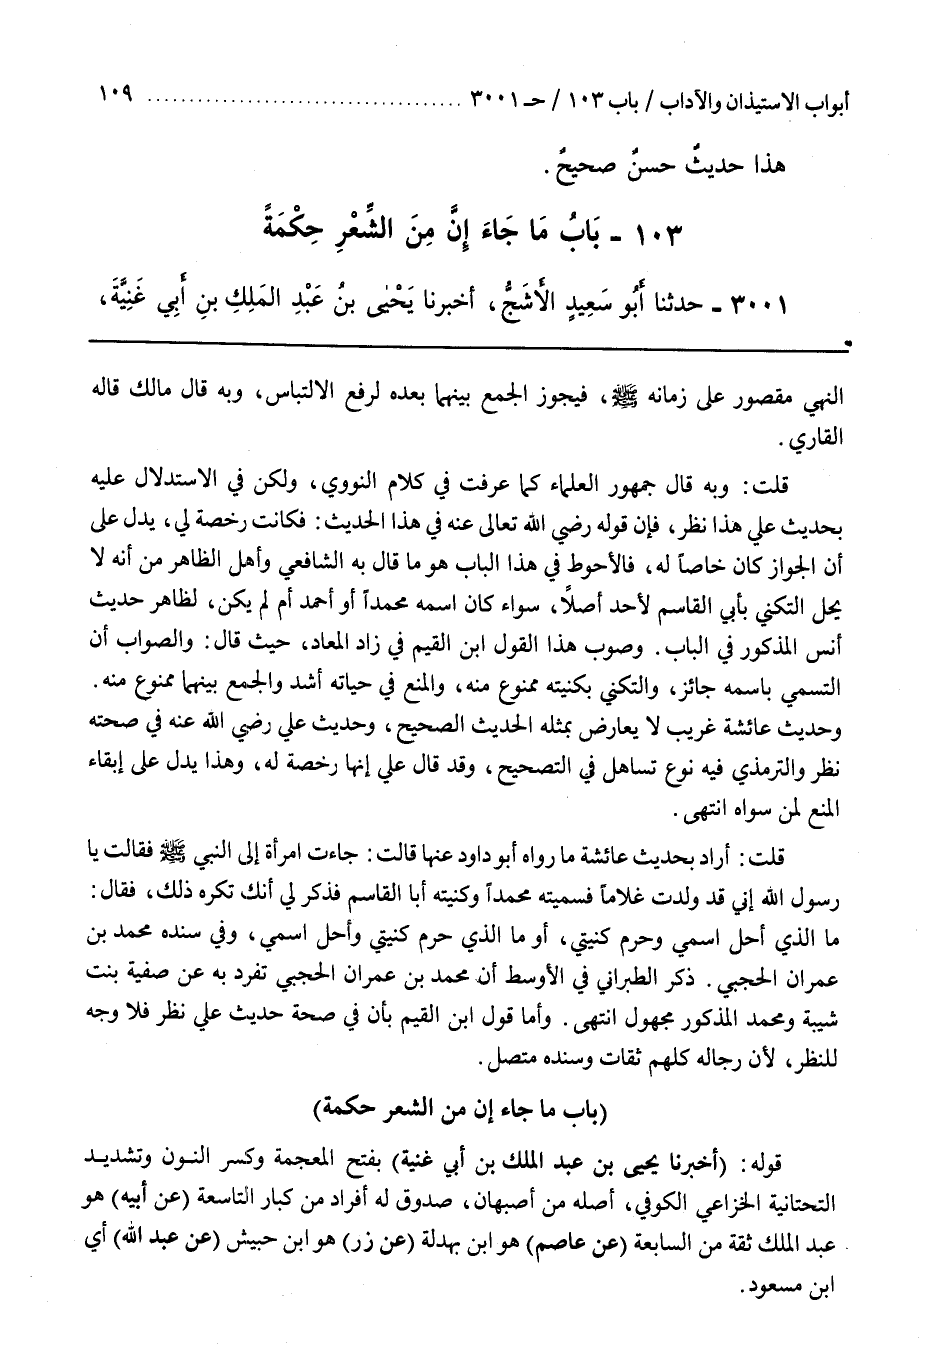 أبواب الاستيذان والآداب / باب ١٠٣ / حـ ٣٠٠١ ................................... ١٠٩
هذا حديثٌ حسنٌ صحيحٌ.
١٠٣ ـ بَابُ مَا جَاءَ إِنَّ مِنَ الشِّعْرِ حِكْمَةً
٣٠٠١ ـ حدثنا أَبُو سَعِيدٍ الْأَشَجُّ، أخبرنا يَحْيَى بنُ عَبْدِ المَلِكِ بنِ أَبي غَنِيَّةَ،
النهي مقصور على زمانه ﷺ، فيجوز الجمع بينهما بعده لرفع الالتباس، وبه قال مالك قاله
القاري.
قلت: وبه قال جمهور العلماء كما عرفت في كلام النووي، ولكن في الاستدلال عليه
بحديث علي هذا نظر، فإن قوله رضي الله تعالى عنه في هذا الحديث: فكانت رخصة لي، يدل على
أن الجواز كان خاصاً له، فالأحوط في هذا الباب هو ما قال به الشافعي وأهل الظاهر من أنه لا
يحل التكني بأبي القاسم لأحد أصلًا، سواء كان اسمه محمداً أو أحمد أم لم يكن، لظاهر حديث
أنس المذكور في الباب. وصوب هذا القول ابن القيم في زاد المعاد، حيث قال: والصواب أن
التسمي باسمه جائز، والتكني بكنيته ممنوع منه، والمنع في حياته أشد والجمع بينهما ممنوع منه.
وحديث عائشة غريب لا يعارض بمثله الحديث الصحيح، وحديث علي رضي الله عنه في صحته
نظر والترمذي فيه نوع تساهل في التصحيح، وقد قال علي إنها رخصة له، وهذا يدل على إبقاء
المنع لمن سواه انتهى.
قلت: أراد بحديث عائشة ما رواه أبو داود عنها قالت: جاءت امرأة إلى النبي ﷺ فقالت يا
رسول الله إني قد ولدت غلاماً فسميته محمداً وكنيته أبا القاسم فذكر لي أنك تكره ذلك، فقال:
ما الذي أحل اسمي وحرم كنيتي، أو ما الذي حرم كنيتي وأحل اسمي، وفي سنده محمد بن
عمران الحجبي. ذكر الطبراني في الأوسط أن محمد بن عمران الحجبي تفرد به عن صفية بنت
شيبة ومحمد المذكور مجهول انتهى. وأما قول ابن القيم بأن في صحة حديث علي نظر فلا وجه
للنظر، لأن رجاله كلهم ثقات وسنده متصل.
(باب ما جاء إن من الشعر حكمة)
قوله: (أخبرنا يحيى بن عبد الملك بن أبي غنية) بفتح المعجمة وكسر النون وتشديد
التحتانية الخزاعي الكوفي، أصله من أصبهان، صدوق له أفراد من كبار التاسعة (عن أبيه) هو
عبد الملك ثقة من السابعة (عن عاصم) هو ابن بهدلة (عن زر) هو ابن حبيش (عن عبد الله) أي
ابن مسعود.